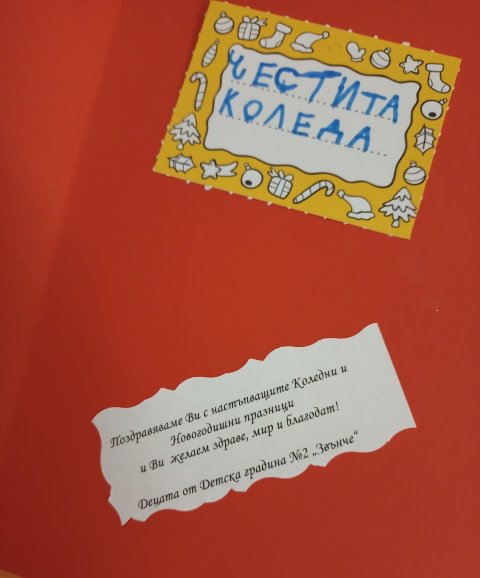 ЧЕСТИТА
КОЛЕДА
Поздравяваме Ви с настъпващите Коледни и
Новогодишни празници
и Ви желаем здраве, мир и благодат!
Децата от Детска градина №2 „Звънче“